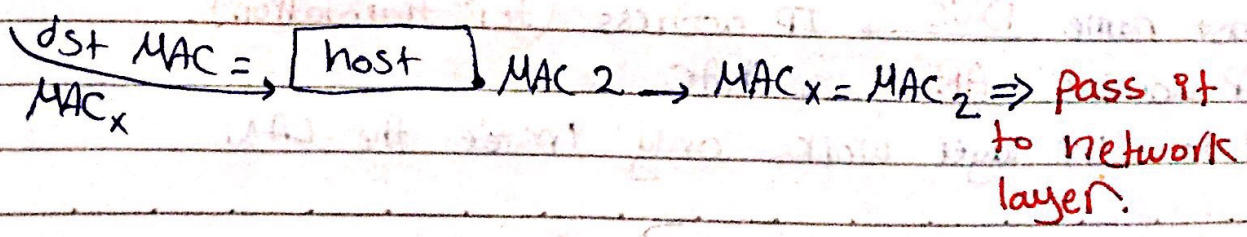 dst MAC = host MAC 2 → MACx = MAC2 ⇒ Pass it
MACx
to network
layer.